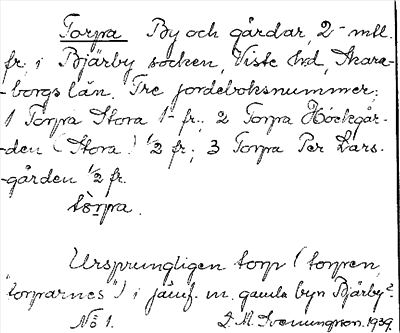 Torpa By och gårdar, 2 - mtl.
fr. i Bjärby socken, Viste hd, Skara-
-borgs län. Tre jordeboksnummer:
1 Torpa Stora 1 - fr.; 2 Torpa Höckgår-
-den (Stora) 1/2 fr.; 3 Torpa Per Lars-
-gården 1/2 fr.
tòrpa.
Ursprungligen torp (torpen,
"torparnes") i jämf. m. gamla byn Bjärby?
No 1. D. M. Svenungson. 1939.